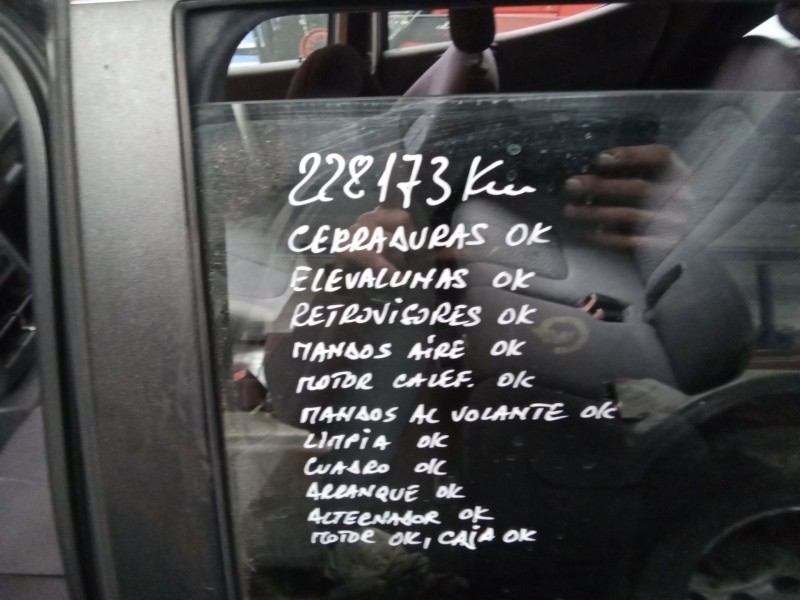 228173 Km
CERRADURAS OK
ELEVALUNAS OK
RETROVISORES OK
MANDOS AIRE OK
MOTOR CALEF. OK
MANDOS AL VOLANTE OK
LIMPIA OK
CUADRO OK
ARRANQUE OK
ALTERNADOR OK
MOTOR OK, CAJA OK